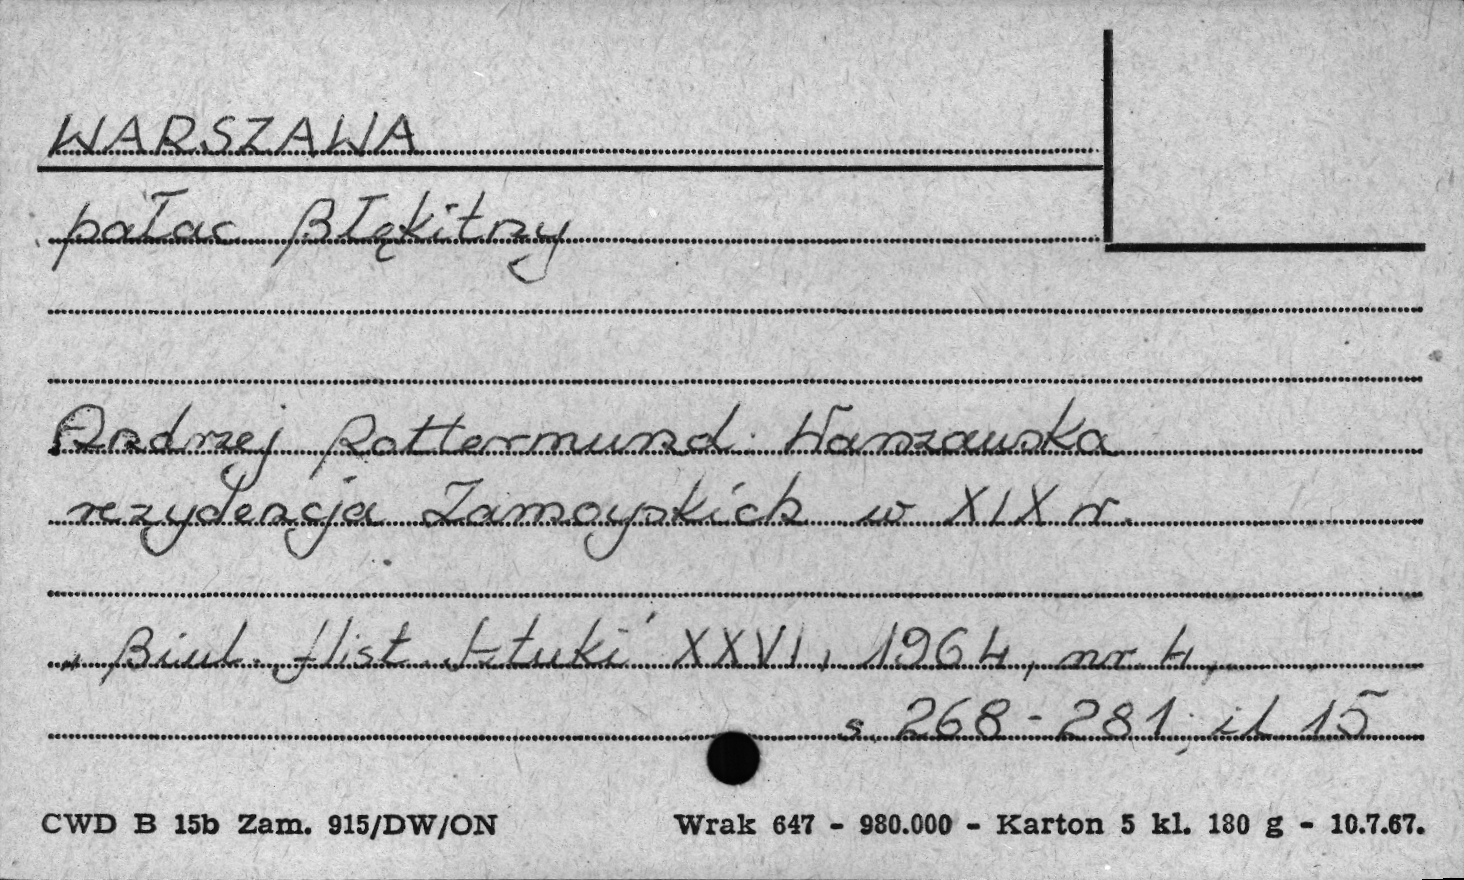 WARSZAWA
pałac Błękitny
Andrzej Rottermund. Warszawska
rezydencja Zamoyskich w XIX w.
„Biul. Hist. Sztuki" XXVI, 1964, nr. 4,
s. 268-281; il 15
CWD B 15b Zam. 915/DW/ON Wrak 647 - 980.000 - Karton 5 kl. 180 g - 10.7.67.